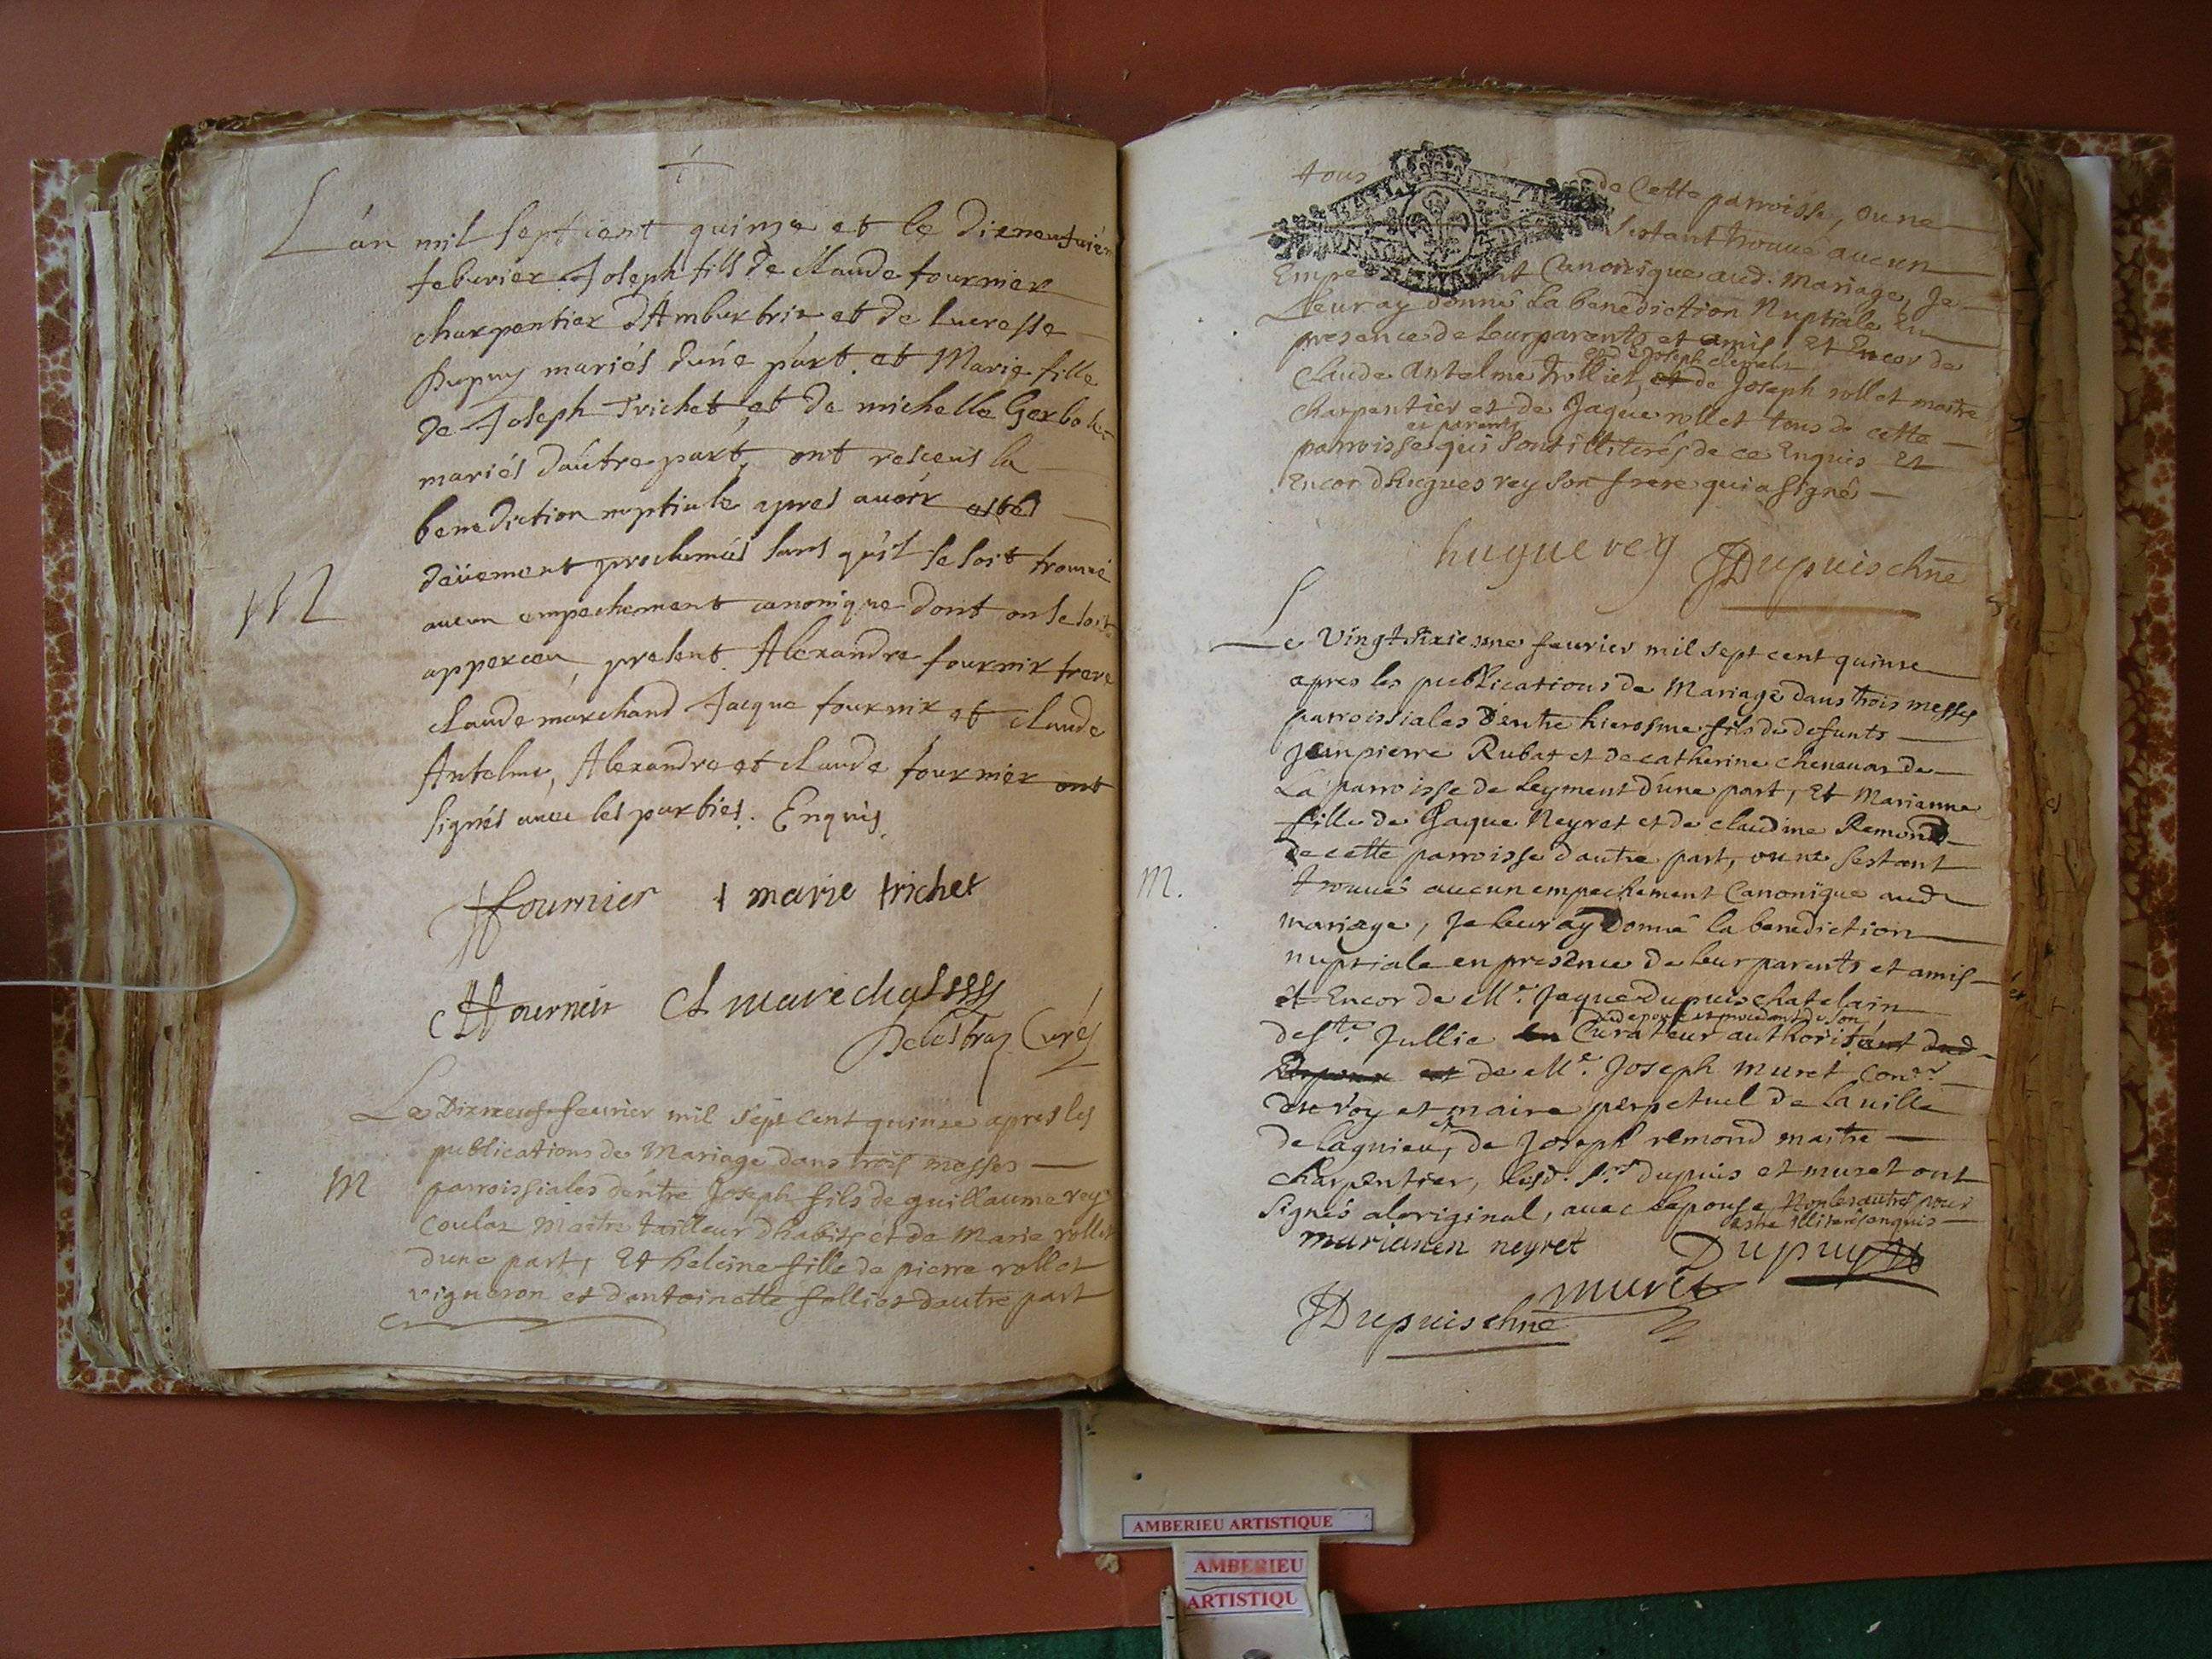 L'an mil sept cent quinze et le dixneufuiém
feburier Joseph fils de Claude fournier
charpentier d'Ambutrix et de Lucresse
Dupuy mariés d'une part et Marie fille
de Joseph Trichet et de michelle
mariés d'autre part, ont resceus la
benediction nuptiale apres auoir estés
deüement proclamés sans qu'il se soit trouué
aucun empechement canonique dont on se soit
apperceu, present Alexandre fournir frere
Claude marchand Jacque fournir et Claude
Antelme, Alexandre et Claude fournier ont
signés auec les parties. Enquis
M
fournier marie trichet
fournier Cl marechal
Delestraz Curé
Le Dixneuf feurier mil sept cent quinze apres les
publications de Mariage dans trois messes
M
parroissiales d'entre Joseph fils de guillaume rey
coulaz Maitre tailleur dhabits et de Marie rollet
dune part, Et heleine fille de pierre rollet
vigneron et dantoinette follict dautre part
tous de Cette parroisse, ou ne
sestant trouué aucun
Empechement Canonique aud. Mariage, Je
Leur ay donné La benediction Nuptiale En
presence de leur parents et amis et Encor de
et de Joseph
Claude Antelme trolliet, et de Joseph rollet maitre
charpentier et de Jaque rollet tous de cette
et parents
parroisse qui sont illiterés de ce Enquis Et
Encor dhugues rey son frere qui a signé
hugue rey JDupuis chne
Le Vingt sixiesme feurier mil sept cent quinse
apres les publications de Mariage dans trois messes
parroissiales d'entre hierosme fils de defunts
Jean pierre Rubat et de catherine cheneuar de
La parroisse de Leyment d'une part, Et Marianne
fille de Jaque Neyret et de claudine Remond
de cette parroisse d'autre part, ou ne sestant
M.
trouué aucun empechement Canonique aud
mariage, Je leur ay Donné la benediction
nuptiale en presence de leur parents et amis
et Encor de Me. Jaque dupuis chatelain
de Ste. Jullie Curateur authorisant dud
Espoux et de Me. Joseph muret Conser
du roy et maire perpetuel de la uille
de lagnieu, et de Joseph remond maitre
charpentier, lesd. Srs dupuis et muret ont
signés aloriginal, auec lepouse, Non les autres pour
estre illiterés enquis
marianen neyret Dupuy
muret
JDupuis chne
AMBERIEU ARTISTIQUE
AMBERIEU
ARTISTIQU